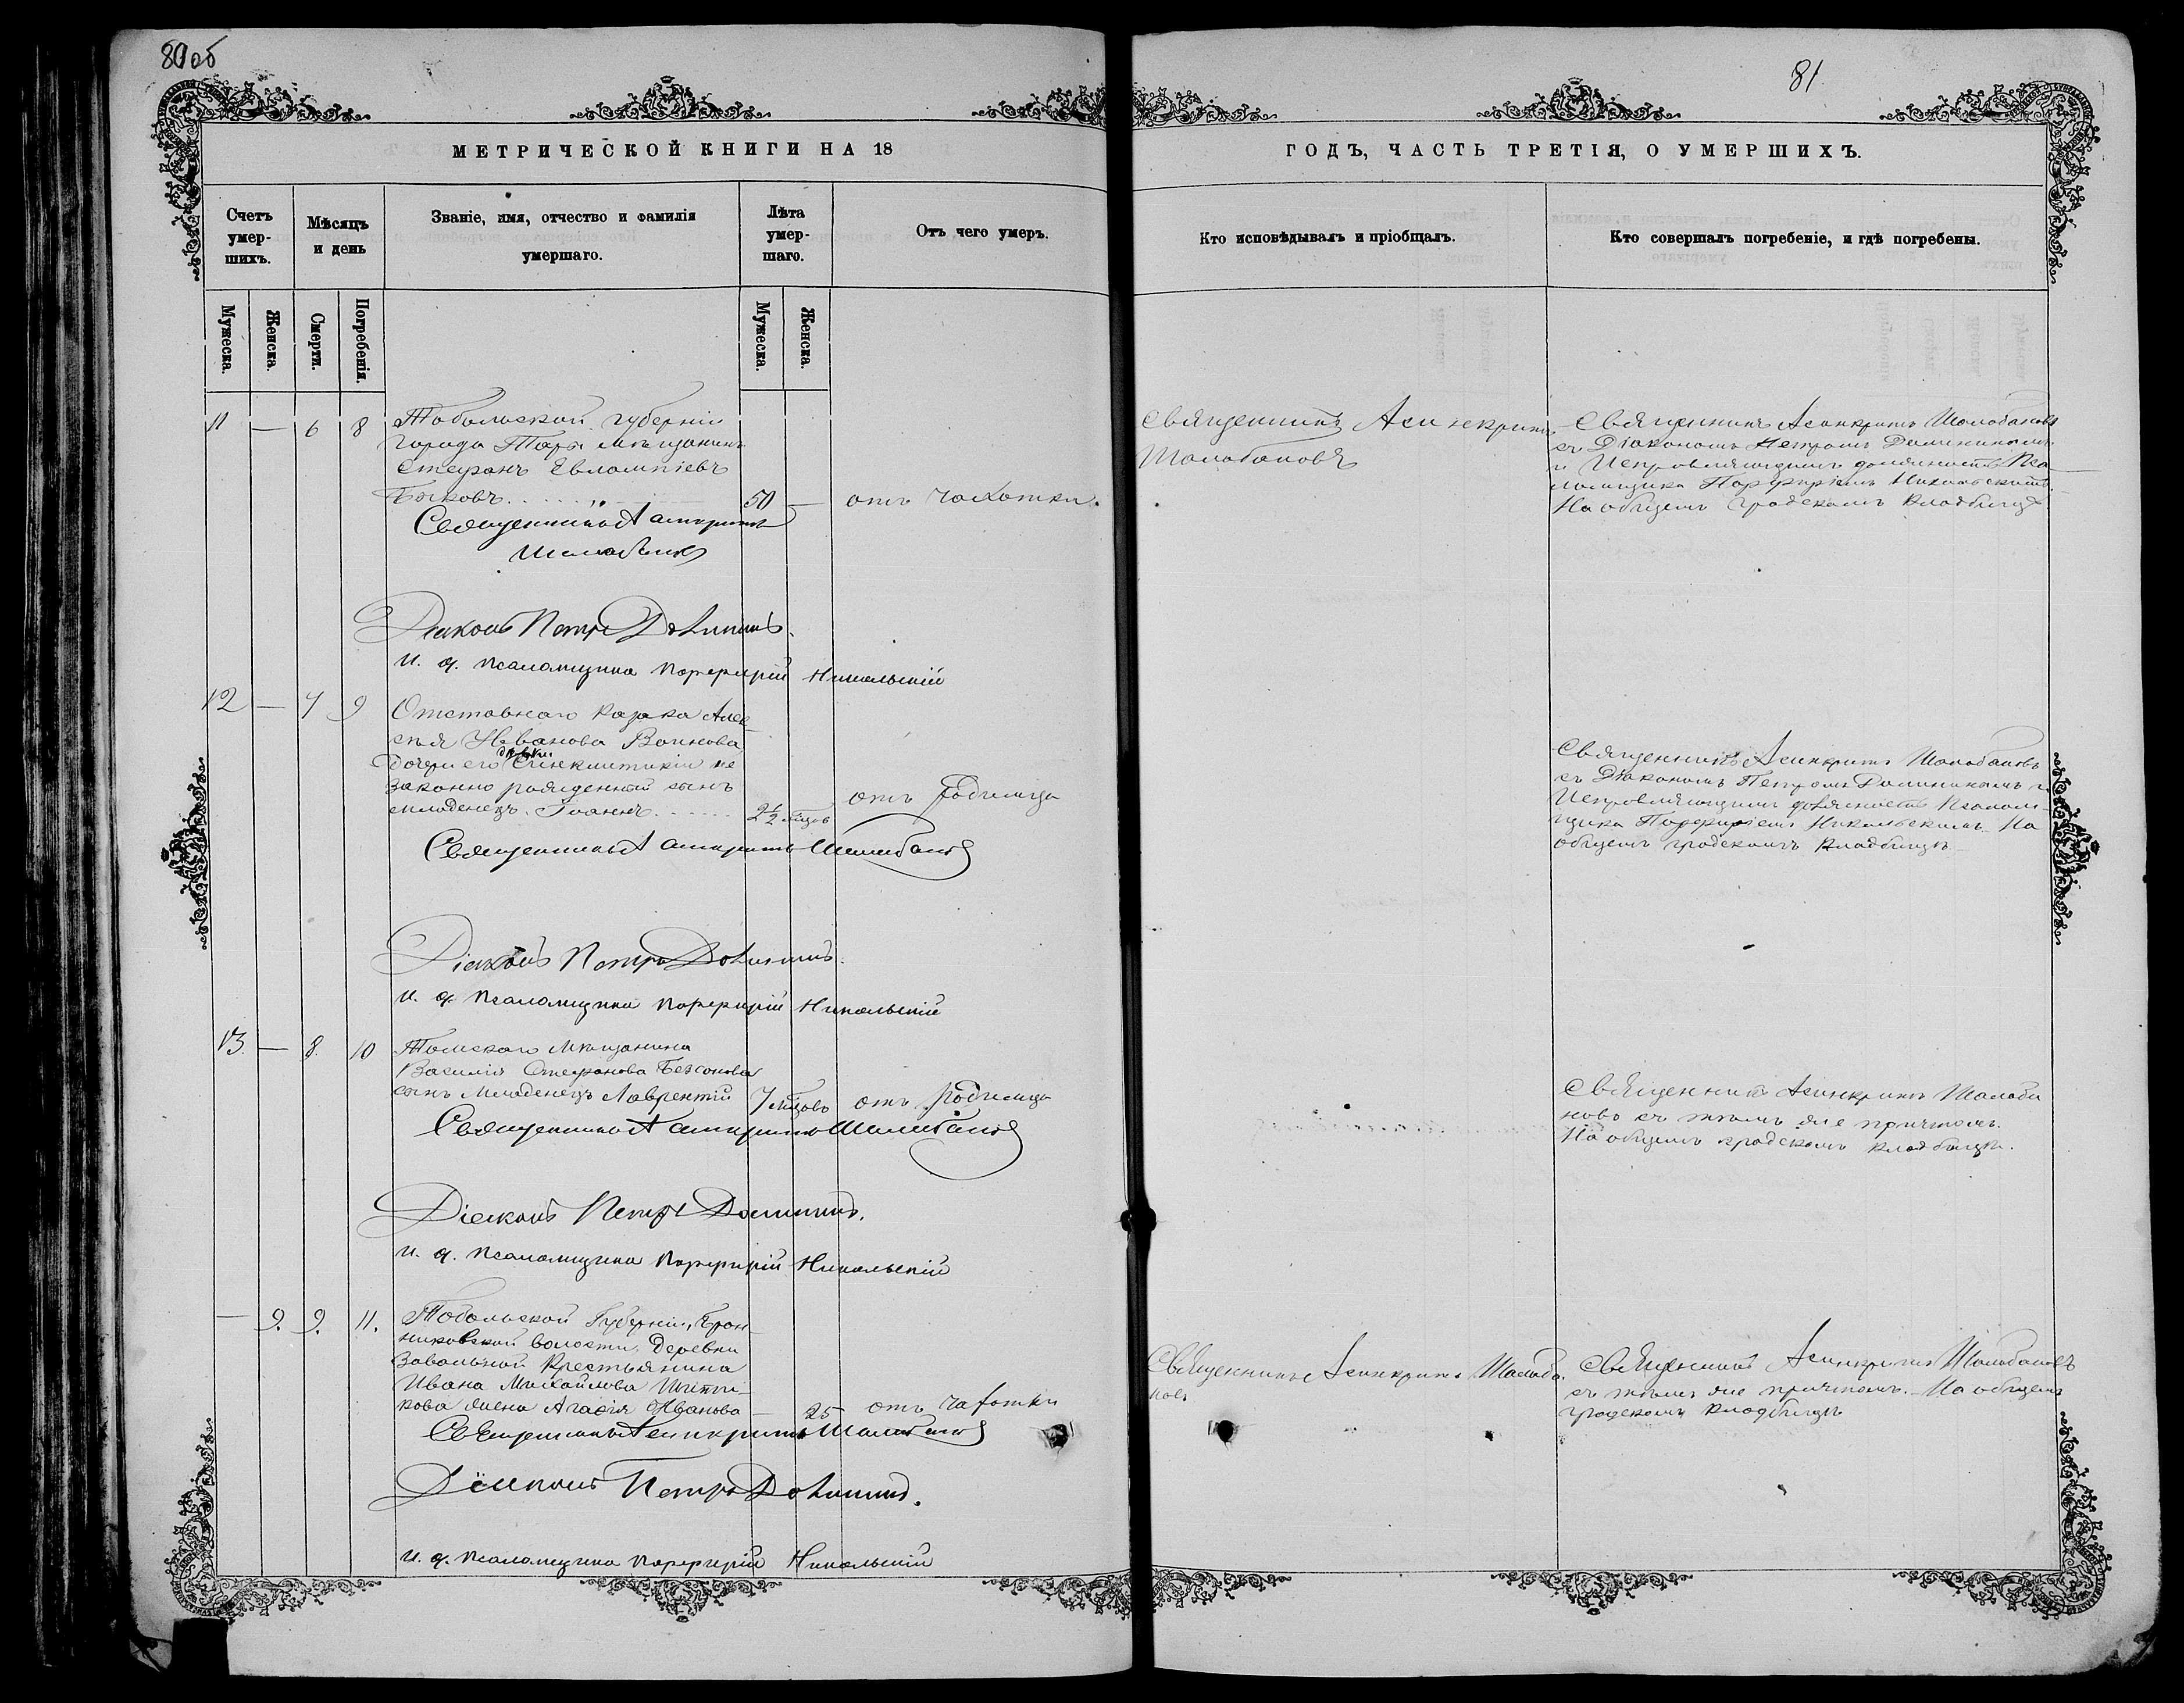 80об
81
МЕТРИЧЕСКОЙ КНИГИ НА 18
ГОДЪ, ЧАСТЬ ТРЕТІЯ, О УМЕРШИХЪ.
Счетъ умер-шихъ.
Мѣсяцъ и день
Званіе, имя, отчество и фамилія умершаго.
Лѣта умер-шаго.
Отъ чего умеръ.
Кто исповѣдывалъ и пріобщалъ.
Кто совершалъ погребеніе, и гдѣ погребены.
Мужеска.
Женска.
Смерти.
Погребенія.
Мужеска.
Женска.
11 — 6 8
Тобольской губерніи
города Тары мѣщанинъ
Стефанъ Евлампіевъ
Быковъ
50 —
отъ чахотки.
Священникъ Асинкритъ
Шалобановъ
Священникъ Асинкритъ Шалобановъ
съ Діакономъ Петромъ Домининымъ
и Исправляющимъ должность Пса-
ломщика Порфиріемъ Никольскимъ.
На общемъ градскомъ кладбищѣ.
Священникъ Асинкритъ
Шалобановъ
Діаконъ Петръ Доминин.
и. д. псаломщика Порфирій Никольскій
12 — 7 9
Отставнаго казака Алек-
сѣя Иванова Воинова,
дочери его дѣвки Синклитикіи не
законно рожденный сынъ
младенецъ Іоаннъ
2½ мѣсяцов
отъ родимца
Священникъ Асинкритъ Шалобановъ
съ Діакономъ Петромъ Доминимымъ и
Исправляющимъ должность Псалом-
щика Порфиріемъ Никольскимъ. На
общемъ градскомъ кладбищѣ
Священникъ Асинкритъ Шалобановъ
Діаконъ Петръ Доминин.
и. д. псаломщика Порфирій Никольскій
13. — 8. 10
Томскаго мѣщанина
Василія Стефанова Безсонова
сынъ младенецъ Лаврентій
7 мѣсяцовъ
отъ родимца
Священникъ Асинкритъ Шалоба
новъ съ тѣмъ же причтомъ.
На общемъ градскомъ кладбищѣ.
Священникъ Асинкритъ Шалобановъ
Діаконъ Петръ Доминин.
и. д. псаломщика Порфирій Никольскій
— 9. 9. 11.
Тобольской Губерніи, Брон-
никовской волости, деревни
Завальной крестьянина
Ивана Михайлова
кова жена Агафія Иванова
— 25
отъ чахотки
Священникъ Асинкритъ Шалоба
новъ
Священникъ Асинкритъ Шалобановъ
съ тѣмъ же причтомъ. — На общемъ
градскомъ кладбищѣ
Священникъ Асинкритъ Шалобановъ
Діаконъ Петръ Доминин.
и. д. псаломщика Порфирій Никольскій